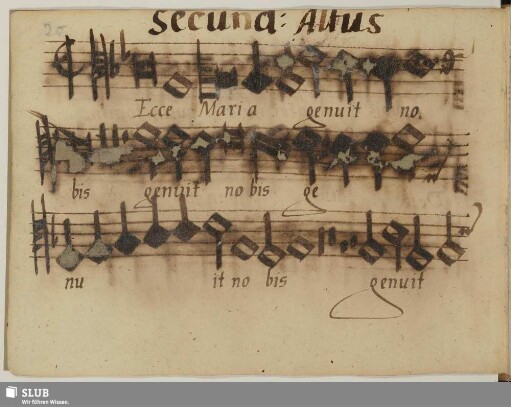 Secund: Altus
Ecce Maria genuit no
bis genuit nobis ge
nu it no bis genuit
SLUB
Wir führen Wissen.